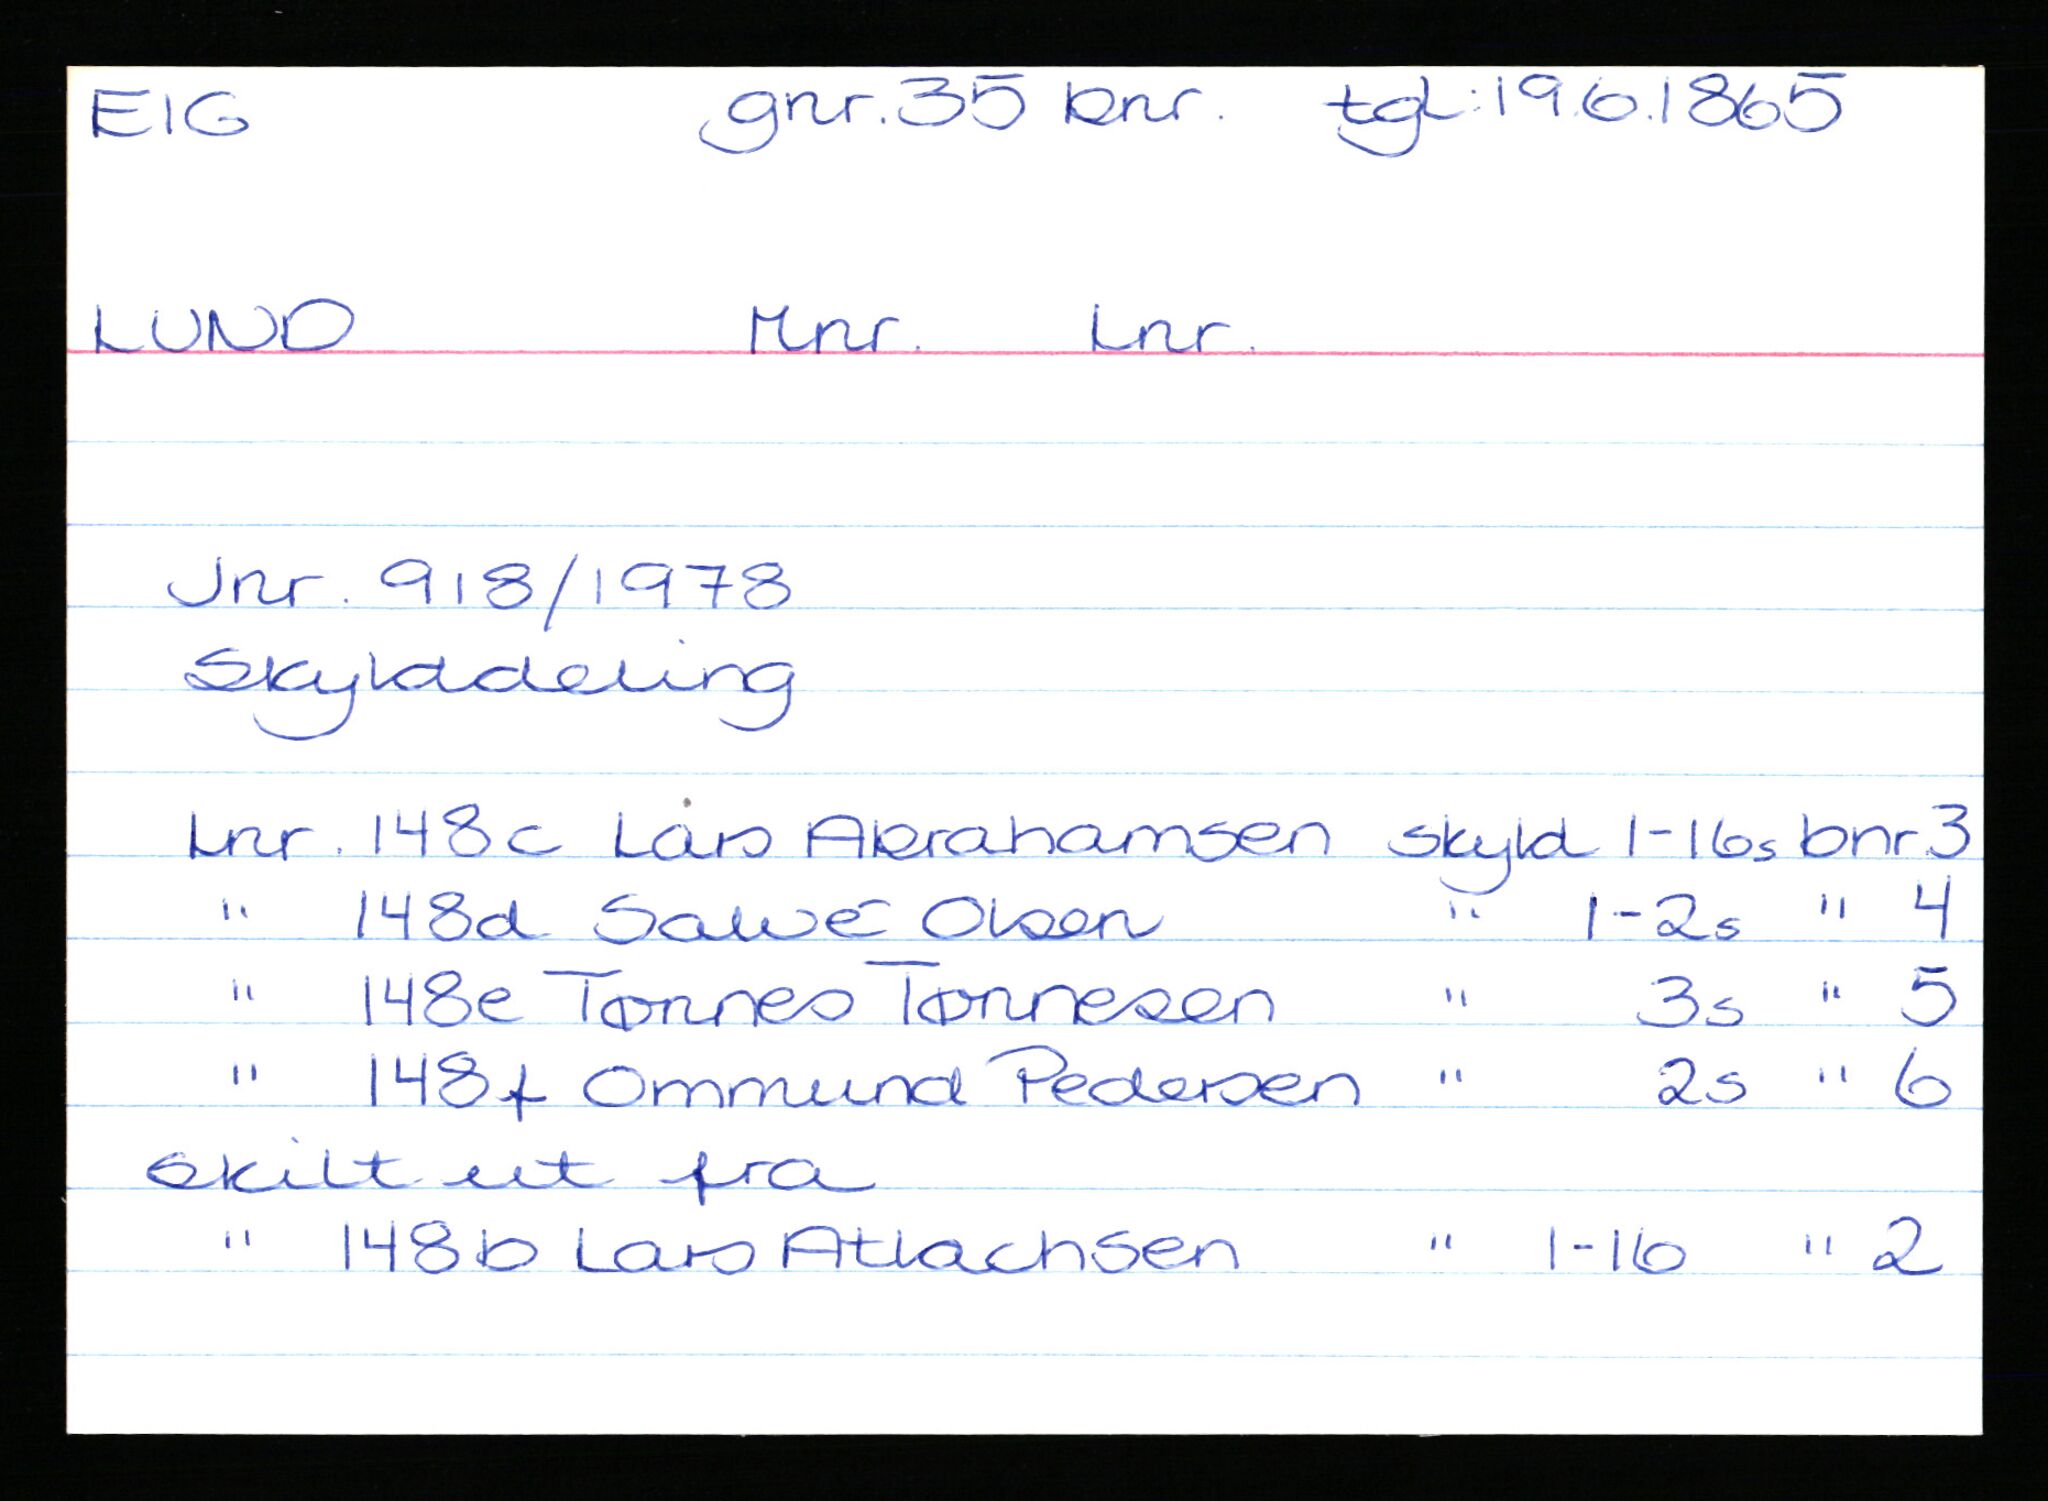 EIG gnr. 35 bnr. tgl: 19.6.1865
LUND Mnr. Lnr.
Jnr. 918/1978
Skylddeling
Lnr. 148c Lars Abrahamsen skyld 1-16s bnr. 3
" 148d Sawe Olsen " 1-2s " 4
" 148e Tønnes Tønnesen " 3s " 5
" 148f Ommund Pedersen " 2s " 6
skilt ut fra
" 148b Lars Atlachsen " 1-16 " 2